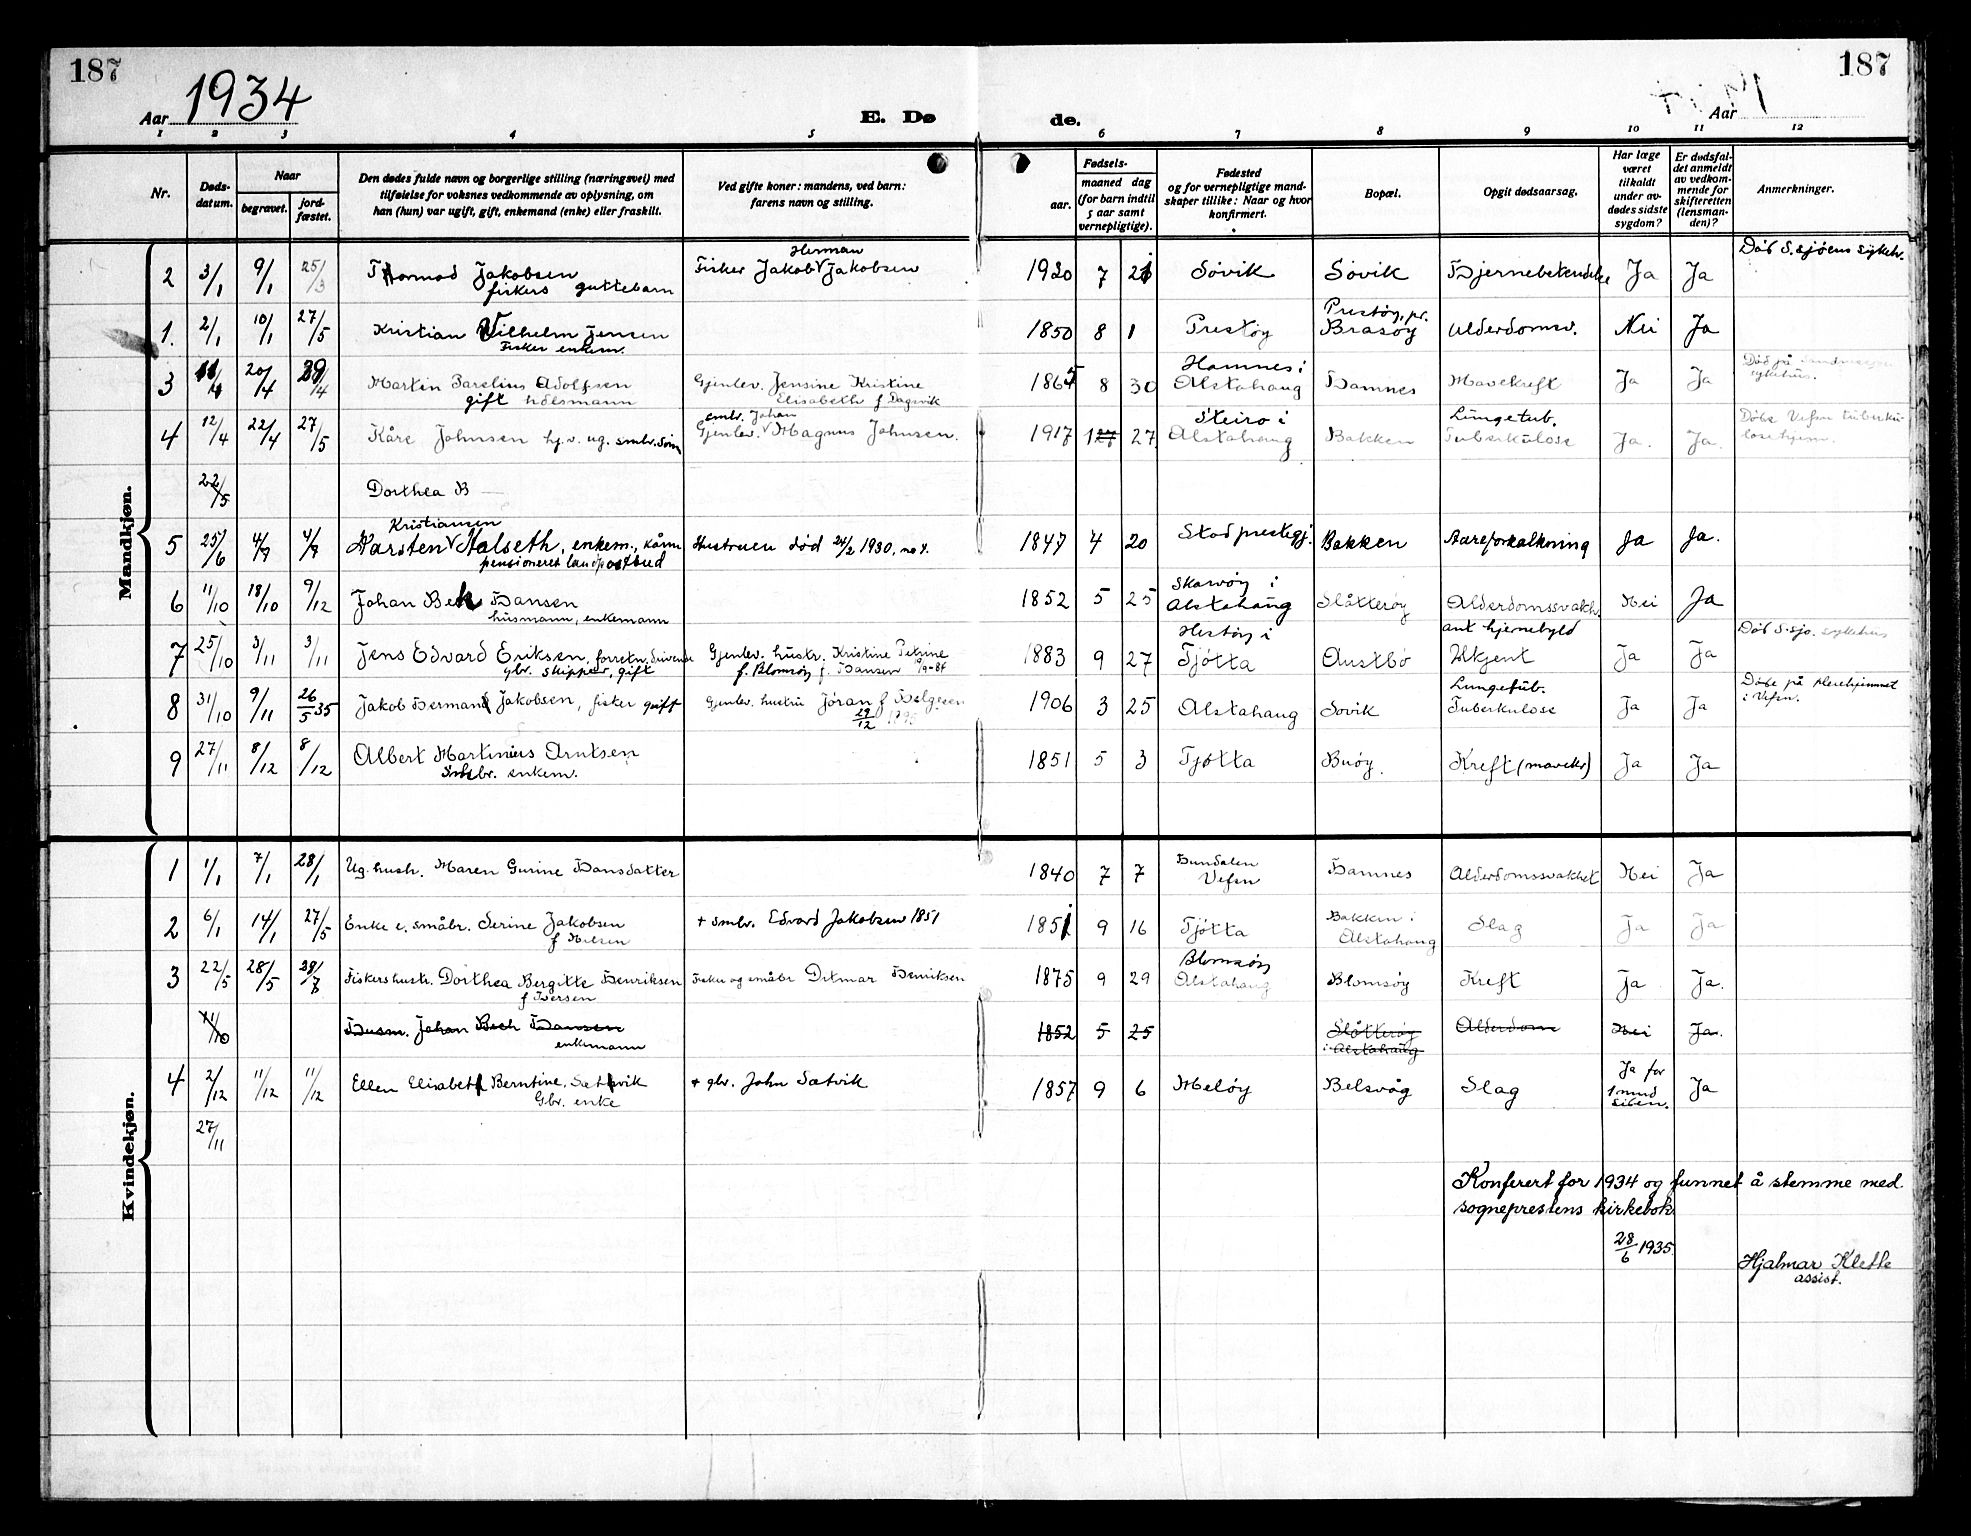 187
187
Aar 1934
E. Dø
de.
Aar
1 2 3 4 5 6 7 8 9 10 11 12
Nr.
Døds-
datum.
Naar
begravet.
jord-
fæstet.
Den dødes fulde navn og borgerlige stilling (næringsvei) med
tilføielse for voksnes vedkommende av oplysning, om
han (hun) var ugift, gift, enkemand (enke) eller fraskilt.
Ved gifte koner: mandens, ved barn:
farens navn og stilling.
Fødsels-
aar.
maaned dag
(for barn indtil
5 aar samt
vernepligtige).
Fødested
og for vernepligtige mand-
skaper tillike: Naar og hvor
konfirmert.
Bopæl.
Opgit dødsaarsag.
Har læge
været
tilkaldt
under av-
dødes sidste
sygdom?
Er dødsfal-
det anmeldt
av vedkom-
mende for
skifteretten
(lensman-
den)?
Anmerkninger.
Mandkjøn.
Herman
Død S.sjøens sykeh.
2 3/1 9/1 25/3 Thormod Jakobsen Fisker Jakob V Jakobsen 1920 7 21 Søvik Søvik Hjernebetendelse Ja Ja
fiskers guttebarn
Prestøy, pr.
1. 2/1 10/1 27/5 Kristian Vilhelm Jensen 1850 8 1 Prestøy Brasøy Alderdomsv. Nei Ja
Fisker enkem.
Hamnes i Død på Sandnessjøen
sykehus.
3 11/4 20/4 29/4 Martin Parelius Adolfsen Gjenlev. Jensine Kristine 1865 8 30 Alstahaug Hamnes Mavekreft Ja Ja
gift husmann Elisabeth f Dagsvik
smbr. Johan Steiro i Lungetub. Døde Vefsn tuberku-
4 12/4 22/4 27/5 Kåre Johnsen hj.v. ug. smbr. sønn Gjenlev. V Magnus Johnsen. 1917 127 27 Alstahaug Bakken Tuberkulose Ja. Ja. losehjem.
22/5 Dorthea B
Kristiansen
5 25/6 4/7 4/7 Karsten V Halseth, enkem., kårm Hustruen død 24/2 1930, no 4. 1847 4 20 Stod prestegj. Bakken Aareforkalkning Ja Ja.
pensioneret landpostbud
Skarvøy i
6 11/10 18/10 9/12 Johan Bech Hansen 1852 5 25 Alstahaug Slåtterøy Alderdomssvakh. Nei Ja
husmann, enkemann
Hestøy i ant hjernebyld Død S.sjø. sykehus
7 25/10 3/11 3/11 Jens Edvard Eriksen, forretn.drivende Gjenlev. hustr. Kristine Petrine 1883 9 27 Tjøtta Austbø Ukjent Ja Ja
gbr. skipper, gift f. Blomsøy f. Hansen 19/9-84
Lungetub. Døde på pleiehjemmet
i Vefsn.
8 31/10 9/11 26/5 35 Jakob Herman Jakobsen, fisker gift Gjenlev. hustru Jøran f Helgesen 1906 3 25 Alstahaug Søvik Tuberkulose Ja Ja
29/12
9 27/11 8/12 8/12 Albert Martinius Arntsen 1851 5 3 Tjøtta Buøy. Kreft (mavekr) Ja Ja
Smbr. enkem.
Kvindekjøn.
1 1/1 7/1 28/1 Ug. hush. Maren Gurine Hansdatter 1840 7 7 Hundalen Hamnes Alderdomssvakhet Nei Ja
Vefsn
2 6/1 14/1 27/5 Enke e. småbr. Serine Jakobsen + smbr. Edvard Jakobsen 1851 1851 9 16 Tjøtta Bakken i Slag Ja Ja
f Nilsen Alstahaug
Blomsøy
3 22/5 28/5 29/7 Fiskershustr. Dorthea Bergitte Henriksen Fisker og småbr Ditmar Henriksen 1875 9 29 Alstahaug Blomsøy Kreft Ja Ja.
f Iversen
11/10 Husm. Johan Bech Hansen 1852 5 25 Slåtterøy Alderdom Nei Ja.
enkemann i Alstahaug
4 2/12 11/12 11/12 Ellen Elisabet Berntine Sætvik + gbr. John Sætvik 1857 9 6 Meløy Belsvåg Slag Ja for Ja
Gbr. enke 1 mnd
siden.
27/11
Konferert for 1934 og funnet å stemme med
sogneprestens kirkebok
28/6 1935.
Hjalmar Klette
assist.